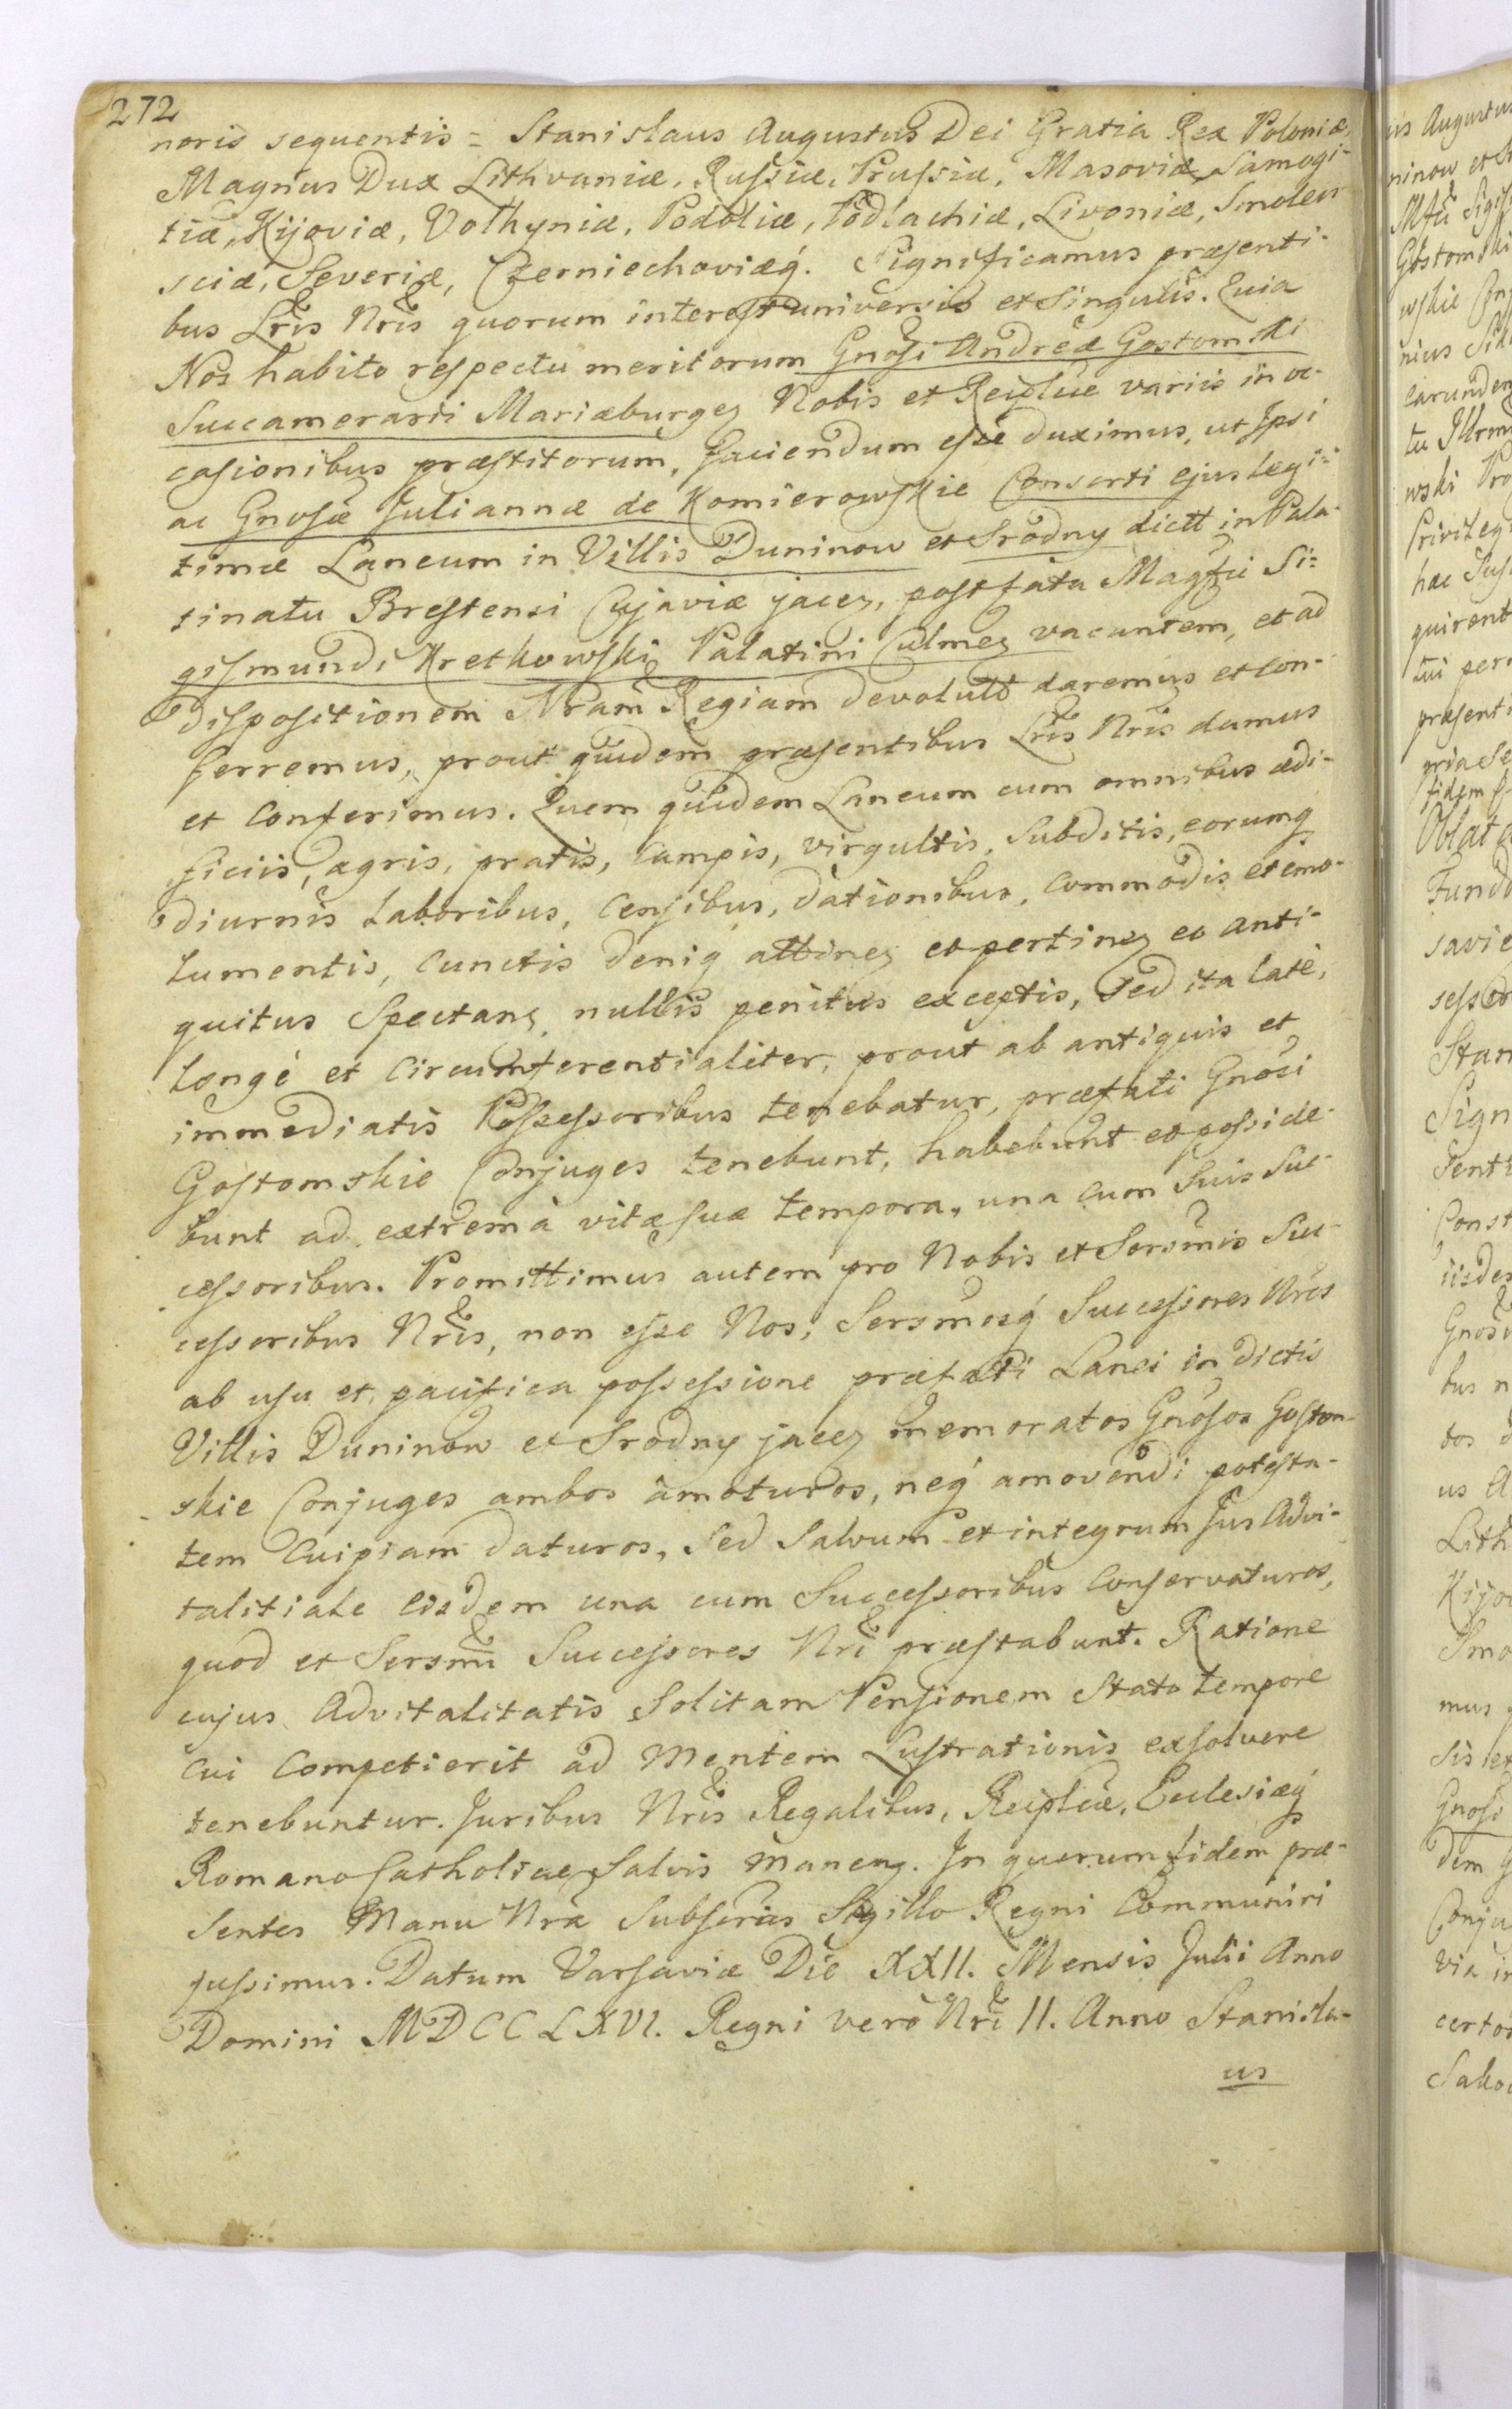 272
noris sequentis = Stanislaus Augustus Dei Gratia Rex Poloniæ,
Magnus Dux Lithvaniæ, Rufsiæ, Prufsiæ, Masoviæ, Samogi-
tiæ, Kijoviæ, Volhyniæ, Podoliæ, Podlachiæ, Livoniæ, Smolen-
sciæ, Severiæ, Czerniechoviæq́. Significamus præsenti-
bus Lris Nris quorum interest universis et singulis. Quia
Nos habito respectu meritorum Gnosi Andreæ Gostomski
Succamerarii Mariæburgeӡ Nobis et Reiplicæ variis in oc-
casionibus præstitorum, faciendum esse duximus, ut Ipsi
ac Gnosæ Juliannæ de Komierowskie Consorti ejus legi-
timæ Laneum in Villis Duninow et Srodny dictt in Pala-
tinatu Brestensi Cujaviæ jaceӡ, post fata Magfci Si=
gismundi Kretkowski Palatini Culmeӡ vacantem, et ad
dispositionem Nram Regiam devolutt daremus et con-
ferremus, prout quidem præsentibus Lris Nris damus
et Conferimus. Quem quidem Laneum cum omnibus ædi-
ficiis, agris, pratis, campis, virgultis, subditis, eorumq
diurnis laboribus, Censibus, dationibus, Commodis et emo-
lumentis, cunctis deniq́ attineӡ et pertineӡ et anti-
quitus Spectanӡ, nullis penitus exceptis, sed ita latè,
longè et circumferentialiter, prout ab antiquis et
immediatis Possessoribus tenebatur, præfati Gnosi
Gostomskie Conjuges tenebunt, habebunt et posside-
bunt ad extrema vitæ suæ tempora, una cum suis Suc-
cessoribus. Promittimus autem pro Nobis et Sersmis Suc-
cessoribus Nris, non esse Nos, Sersmosq́ Successores Nros
ab usu et pacifica possessione præfati Lanei in dictis
Villis Duninow et Srodny jaceӡ memoratos Gnosos Gostom-
skie Conjuges ambos amoturos, neq́ amovendi potesta-
tem Cuipiam daturos, sed Salvum et integrum Jus Advi-
talitiale Eisdem una cum Successoribus Conservaturos,
quod et Sersmi Successores Nri præstabunt. Ratione
cujus Advitalitatis Solitam Pensionem Stato tempore
Cui Competierit ad Mentem Lustrationis exsolvere
tenebuntur. Juribus Nris Regalibus, Reiplicæ, Ecclesiæq
Romano Catholicæ Salvis maneng. In quorum fidem præ-
sentes Manu Nra Subscrias Sigillo Regni Communiri
jussimus. Datum Varsaviæ Die XXII. Mensis Julii Anno
Domini MDCCLXVI. Regni verò Nri II. Anno Stanisla-
us